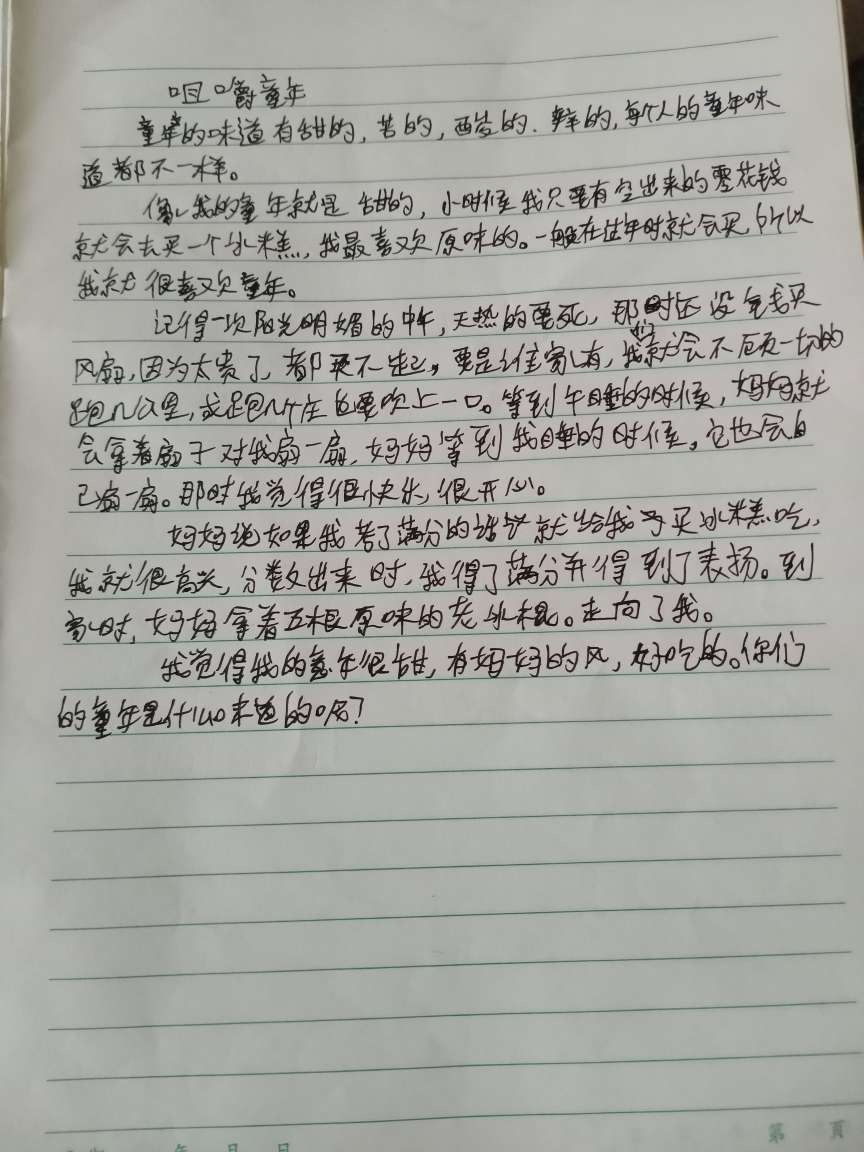 咀嚼童年
童年的味道有甜的,苦的,酸的.辣的,每个人的童年味
道都不一样。
像我的童年就是甜的,小时候我只要有空出来的零花钱
就会去买一个冰糕,我最喜欢原味的。一般在过年时就会买,所以
我就很喜欢童年。
记得一次阳光明媚的中午,天热的要死,那时还没钱买
风扇,因为太贵了,都买不起,要是谁家有,我们就会不顾一切的
跑几公里,或跑几个庄也要吹上一口。等到午睡的时候,妈妈就
会拿着扇子对我扇一扇,妈妈等到我睡的时候,它也会自
己扇一扇。那时我觉得很快乐,很开心。
妈妈说如果我考了满分的话就给我买冰糕吃,
我就很高兴,分数出来时,我得了满分并得到了表扬。到
家时,妈妈拿着五根原味的老冰棍。走向了我。
我觉得我的童年很甜,有妈妈的风,好吃的。你们
的童年是什么味道的呢?
第 页
年 月 日